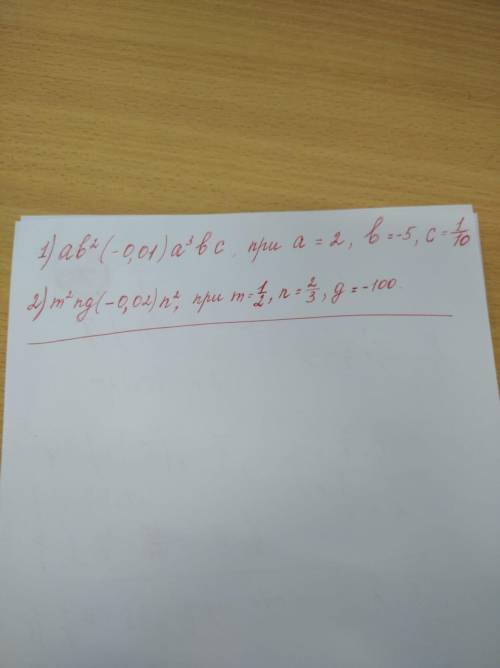 1) ab² (-0,01) a³bc, при a = 2, b = -5, c = 1/10
2) m²ng(-0,02)n², при m = 1/2, n = 2/3, g = -100.